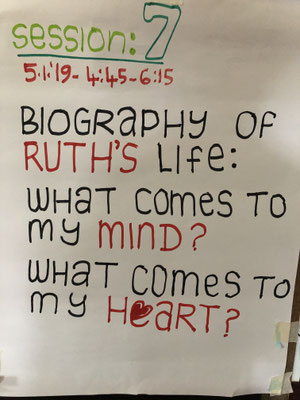 session: 7
5.1.'19 - 4:45-6:15
BIOGRAPHY OF
RUTH'S LIFe:
WHAT COMES TO
my MIND?
WHAT COMES TO
my HeART?